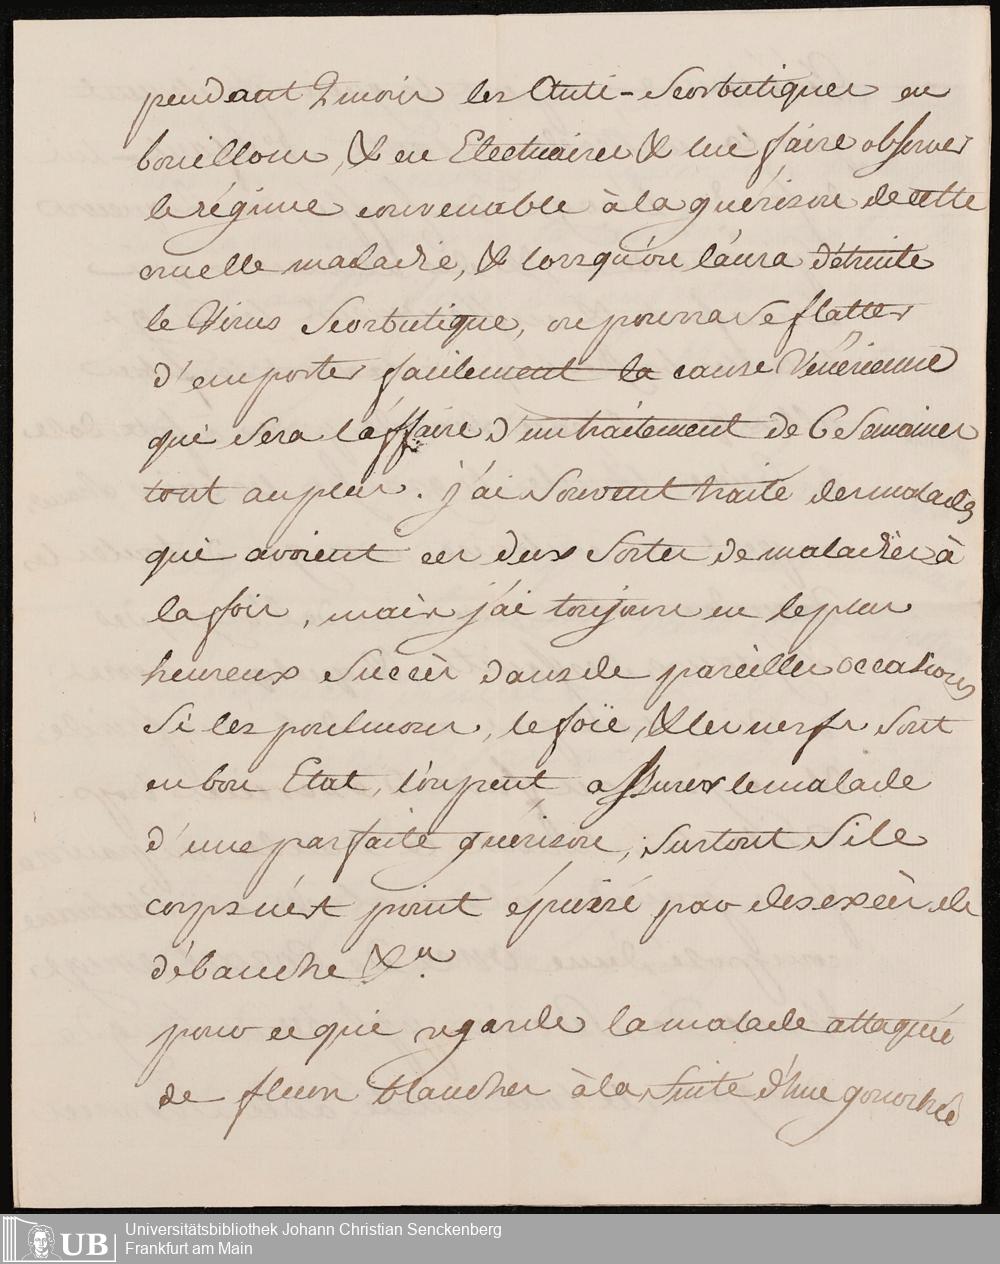 pendant 2 mois les Anti-Scorbutiques en
bouillons, & en Electuaires & lui faire observer
le régime convenable à la guérison de cette
cruelle maladie, & lorsqu'on l'aura détruite
le Virus Scorbutique, on pourra se flatter
d'emporter facilement la cause Vénérienne
qui sera l'affaire d'un traitement de 6 Semaines
tout au plus. j'ai Souvent traité des malades
qui avoient ces deux Sortes de maladies à
la fois, mais j'ai toujours eu le plus
heureux Succès dans de pareilles occasions
Si les poulmons, le foïe, & les nerfs Sont
en bon Etat, l'on peut assurer le malade
d'une parfaite guérison, Surtout Si le
corps n'est point épuisé par des excès de
débauche &a.
pour ce qui regarde la malade attaquée
de fleurs blanches à la Suite d'une gonorhée
UB Universitätsbibliothek Johann Christian Senckenberg
Frankfurt am Main